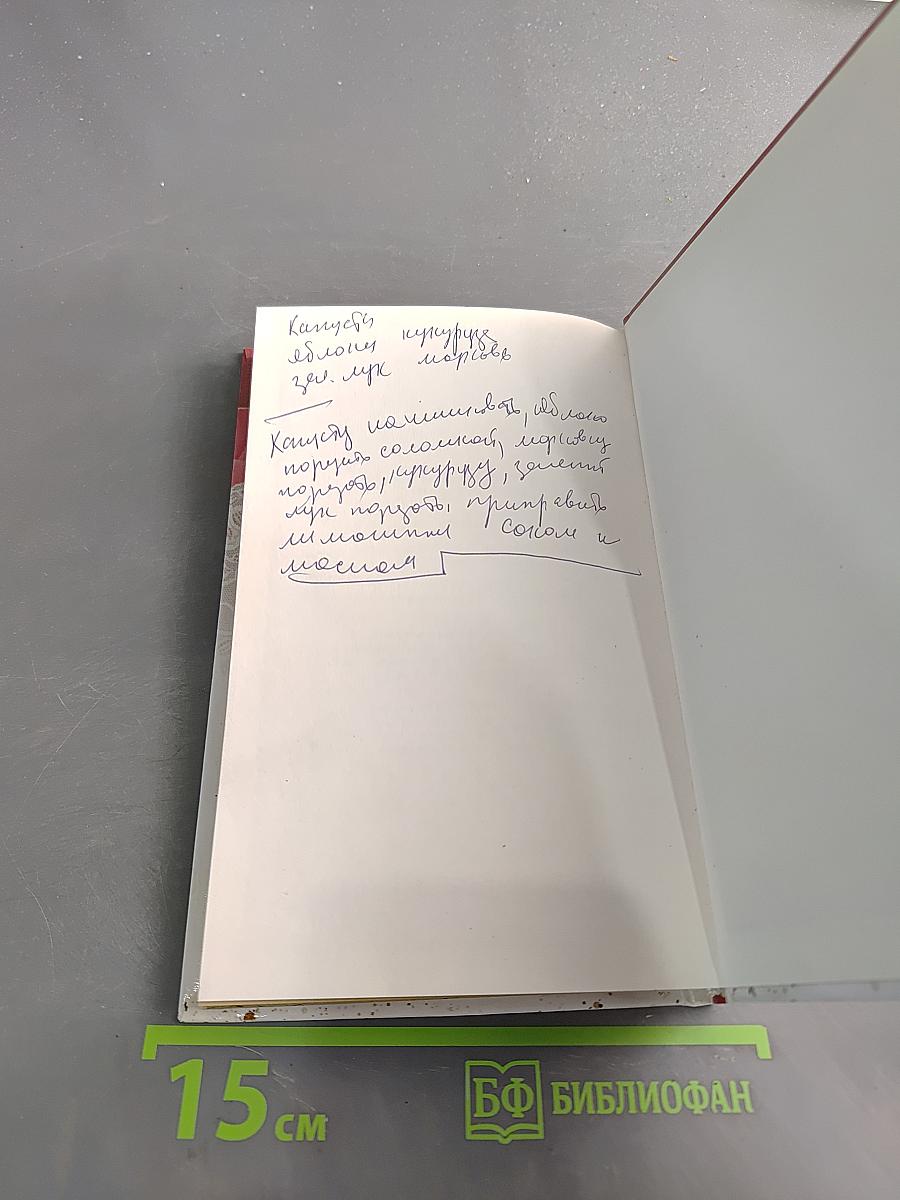 Капуста
яблоки кукуруза
зел. лук морковь
Капусту нашинковать, яблоко
порезать соломкой, морковку
порезать, кукурузу, зеленый
лук порезать, приправить
лимонным соком и
маслом
15 см
БФ БИБЛИОФАН